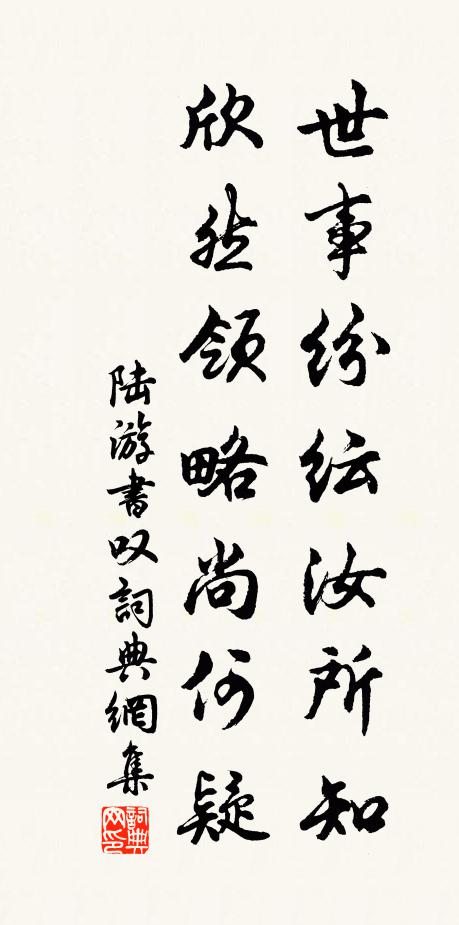 世事纷纭汝所知
欣然领略尚何疑
陆游書叹詞典網集
詞典
网印